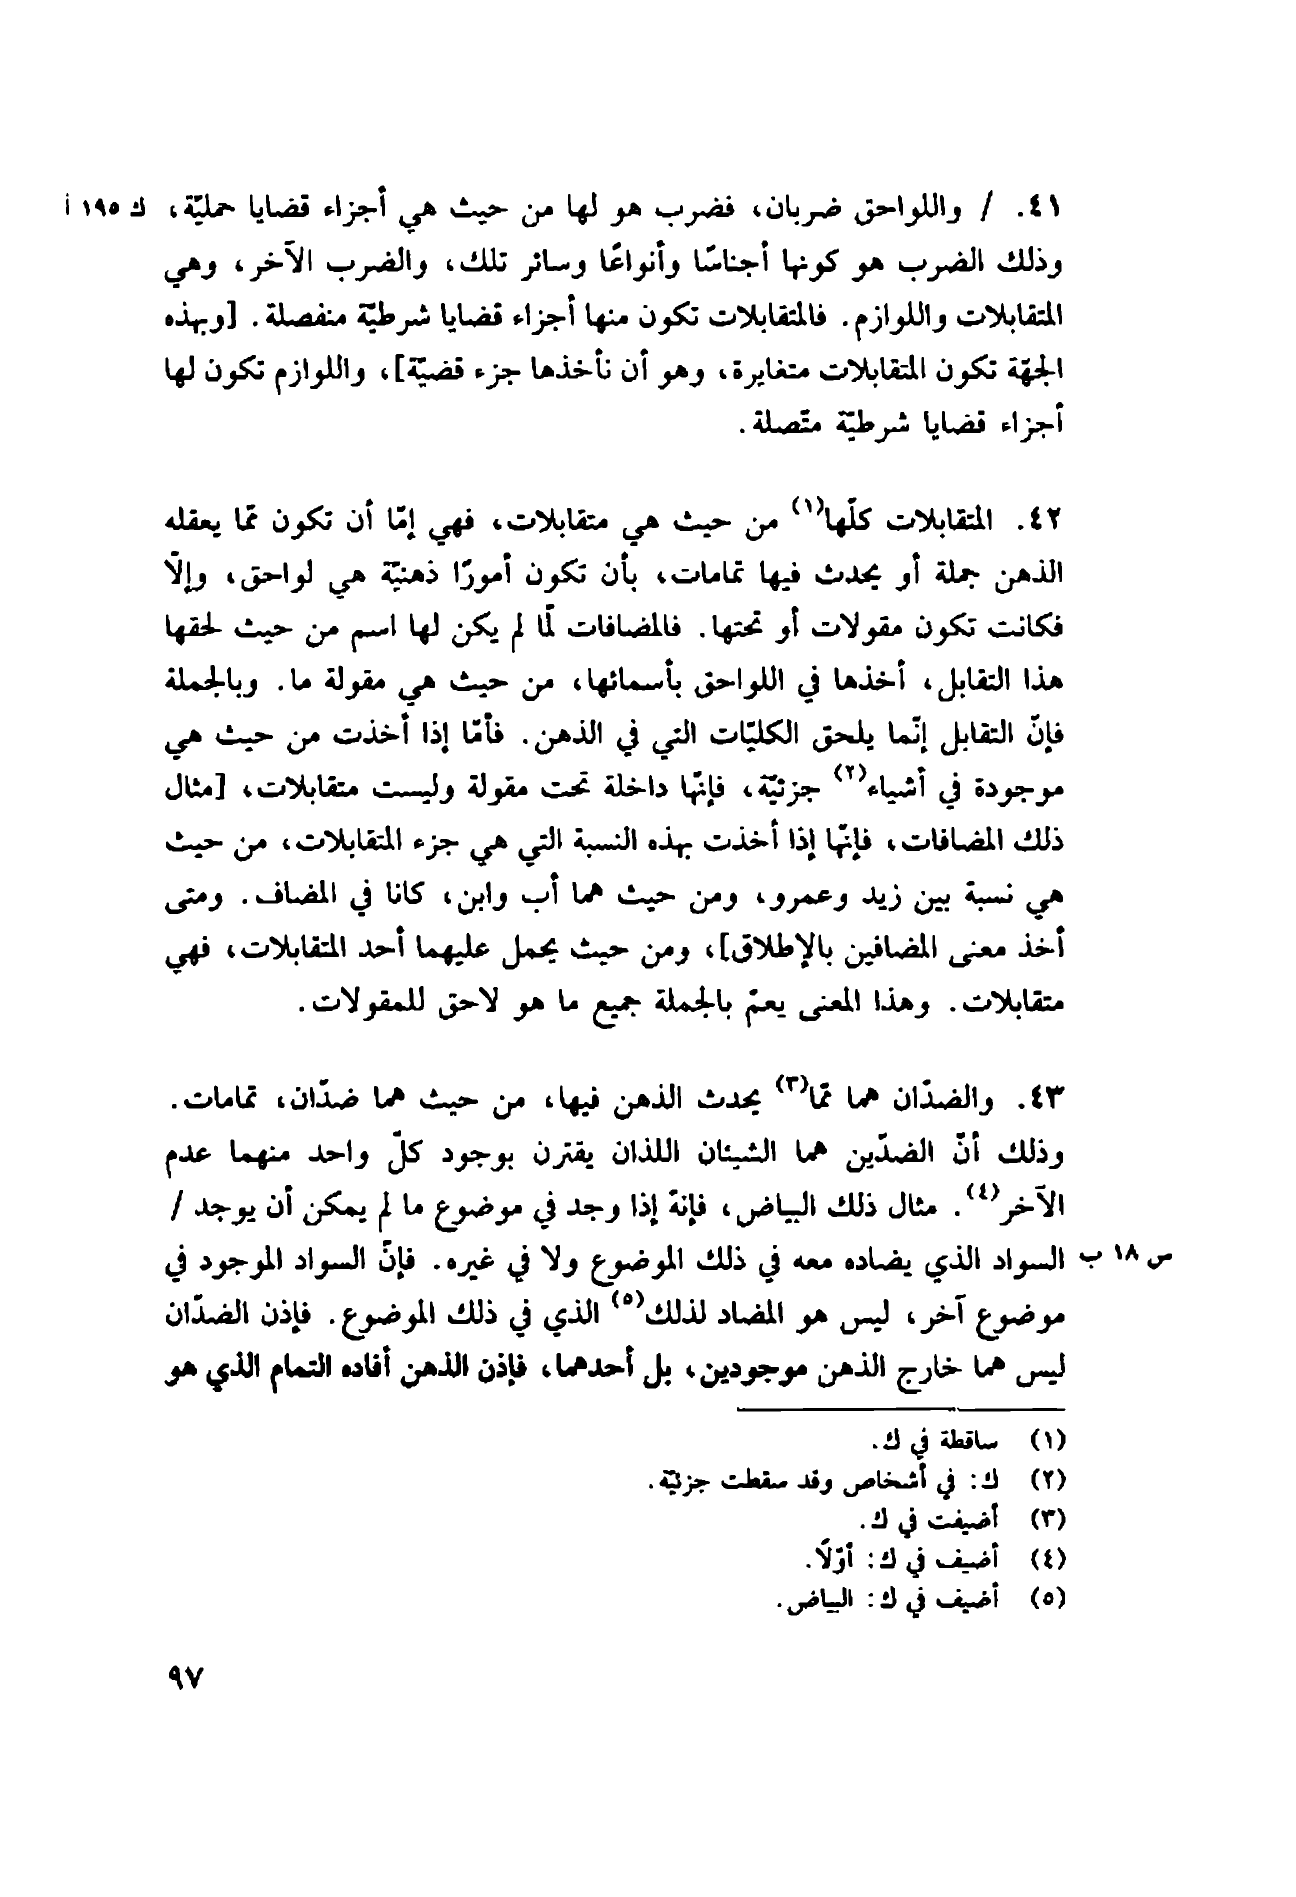 ٤١. / واللواحق ضربان، فضرب هو لها من حيث هي أجزاء قضايا حمليّة، ك ١٩٥ أ
وذلك الضرب هو كونها أجناسًا وأنواعًا وسائر تلك، والضرب الآخر، وهي
المتقابلات واللوازم. فالمتقابلات تكون منها أجزاء قضايا شرطيّة منفصلة. [وبهذه
الجهّة تكون المتقابلات متغايرة، وهو أن نأخذها جزء قضيّة]، واللوازم تكون لها
أجزاء قضايا شرطيّة متّصلة.
٤٢. المتقابلات كلّها(١) من حيث هي متقابلات، فهي إمّا أن تكون ممّا يعقله
الذهن جملة أو يحدث فيها تمامات، بأن تكون أمورًا ذهنيّة هي لواحق، وإلّا
فكانت تكون مقولات أو تحتها. فالمضافات لمّا لم يكن لها اسم من حيث لحقها
هذا التقابل، أخذها في اللواحق بأسمائها، من حيث هي مقولة ما. وبالجملة
فإنّ التقابل إنّما يلحق الكليّات التي في الذهن. فأمّا إذا أخذت من حيث هي
موجودة في أشياء(٢) جزئيّة، فإنّها داخلة تحت مقولة وليست متقابلات، [مثال
ذلك المضافات، فإنّها إذا أخذت بهذه النسبة التي هي جزء المتقابلات، من حيث
هي نسبة بين زيد وعمرو، ومن حيث هما أب وابن، كانا في المضاف. ومتى
أخذ معنى المضافين بالإطلاق]، ومن حيث يحمل عليهما أحد المتقابلات، فهي
متقابلات. وهذا المعنى يعمّ بالجملة جميع ما هو لاحق للمقولات.
٤٣. والضدّان هما ممّا(٣) يحدث الذهن فيها، من حيث هما ضدّان، تمامات.
وذلك أنّ الضدّين هما الشيئان اللذان يقترن بوجود كلّ واحد منهما عدم
الآخر(٤). مثال ذلك البياض، فإنهّ إذا وجد في موضوع ما لم يمكن أن يوجد /
السواد الذي يضاده معه في ذلك الموضوع ولا في غيره. فإنّ السواد الموجود في ص ١٨ ب
موضوع آخر، ليس هو المضاد لذلك(٥) الذي في ذلك الموضوع. فإذن الضدّان
ليس هما خارج الذهن موجودين، بل أحدهما، فإذن الذهن أفاده التمام الذي هو
(١) ساقطة في ك.
(٢) ك: في أشخاص وقد سقطت جزئيّة.
(٣) أضيفت في ك.
(٤) أضيف في ك: أوّلًا.
(٥) أضيف في ك: البياض.
٩٧